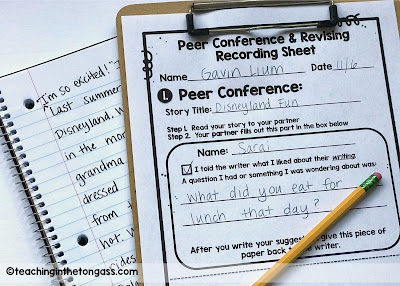 Peer Conference & Revising
Recording Sheet
Name Gavin Lium Date 11/6
L Peer Conference:
Story Title: Disneyland Fun
Step 1. Read your story to your partner
Step 2. Your partner fills out this part in the box below
Name: Sarai
I told the writer what I liked about their writing.
A question I had or something I was wondering about was:
What did you eat for
lunch that day?
After you write your suggest give this piece of
paper back to writer.
"I'm so excited!" "I
Last summer
Disneyland.
in the mor
grandma
dressed
from t
hot.
besides
©teachinginthetongass.com